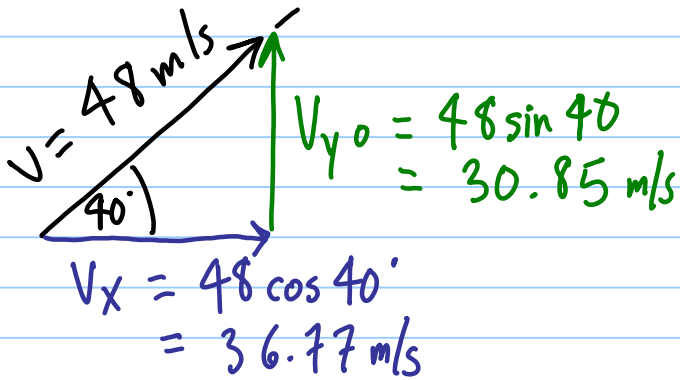 V = 48 m/s
40°
Vyo = 48 sin 40
= 30.85 m/s
Vx = 48 cos 40°
= 36.77 m/s